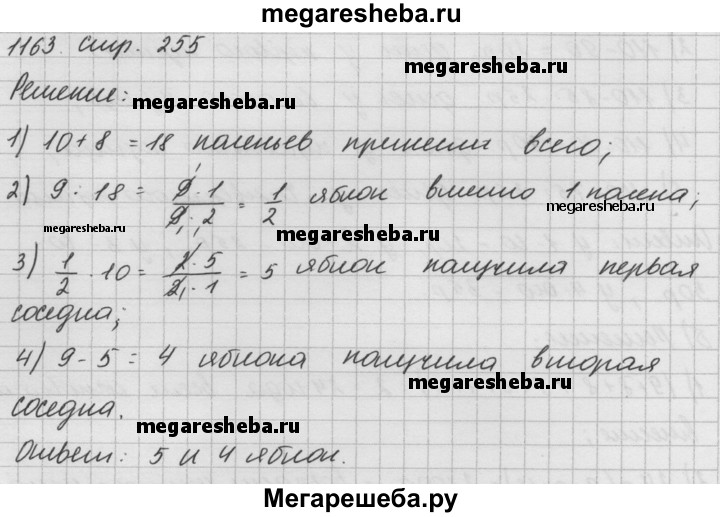 megaresheba.ru
1163. стр. 255
Решение:
megaresheba.ru
1) 10+8 = 18 поленьев принесли всего;
2) 9 : 18 = 9·1/9·2 = 1/2 яблок вместо 1 полена;
megaresheba.ru
megaresheba.ru
megaresheba.ru
3) 1/2 · 10 = 2·5/2·1 = 5 яблок получила первая
соседка;
4) 9-5 = 4 яблока получила вторая
megaresheba.ru
соседка.
megaresheba.ru
Ответ: 5 и 4 яблок.
Мегарешеба.ру